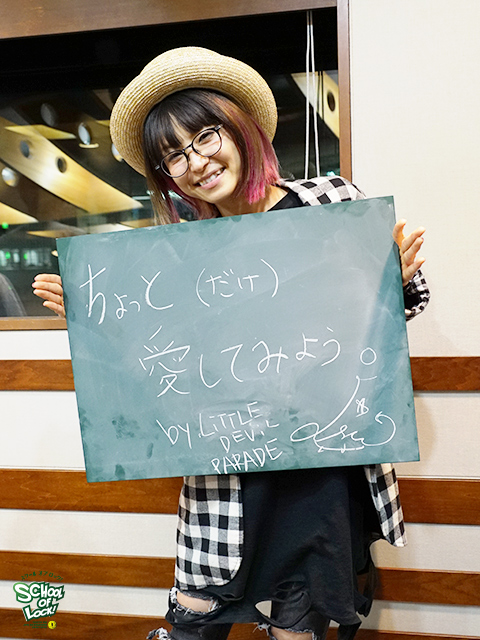 ちょっと (だけ)
愛してみよう。
by LiTTLE
DEViL
PARADE
SCHOOL
OF
LOCK!